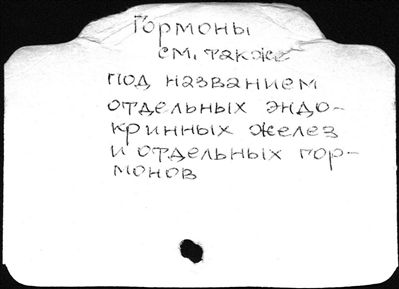 Гормоны
см. также
под названием
отдельных эндо-
кринных желез
и отдельных гор-
монов